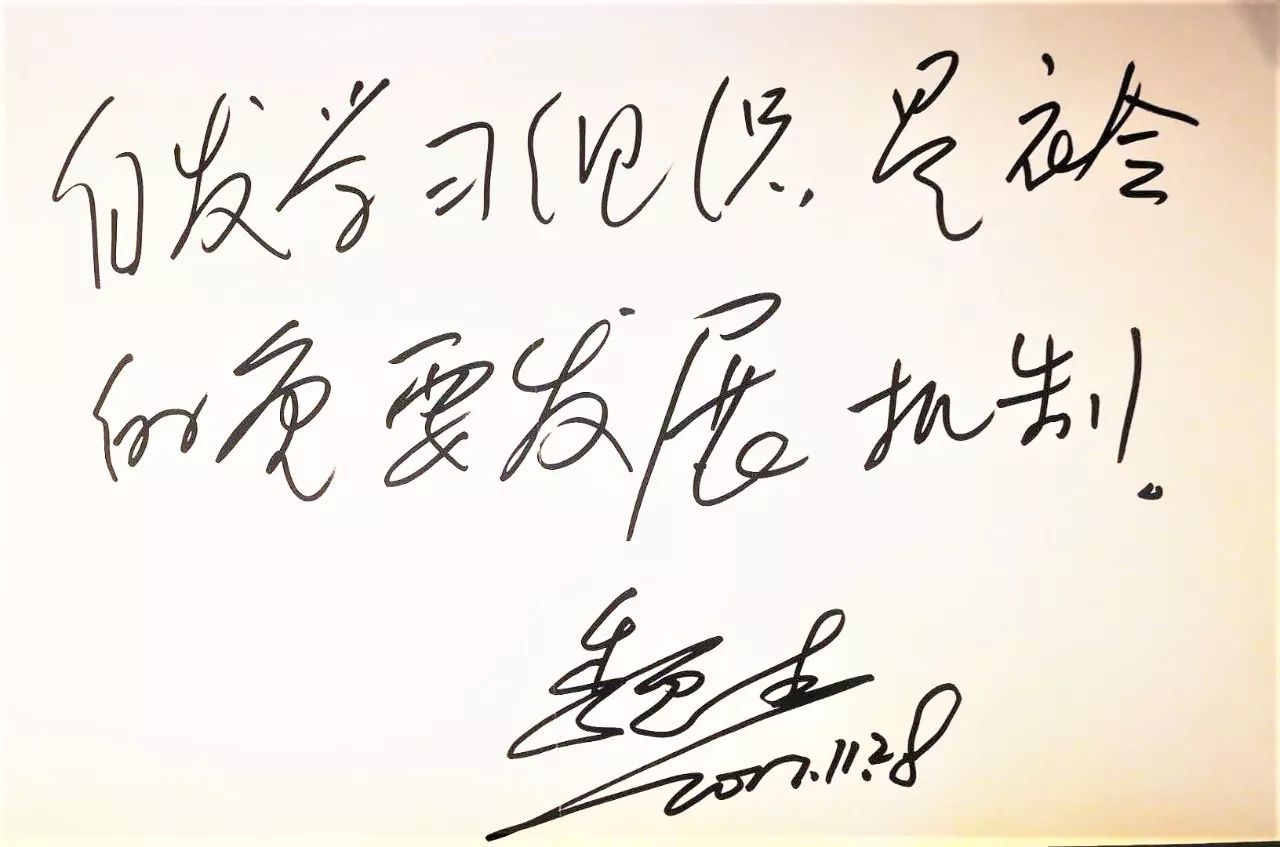 自发学习组织是社会
的重要发展机制!
2017.11.28